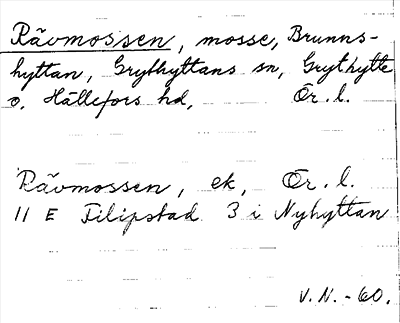 Rävmossen, mosse, Brunns-
hyttan, Grythyttans sn, Grythytte
o. Hällefors hd, Ör. l.
Rävmossen, ek, Ör. l.
11 E Filipstad 3 i Nyhyttan
V.N. -60.